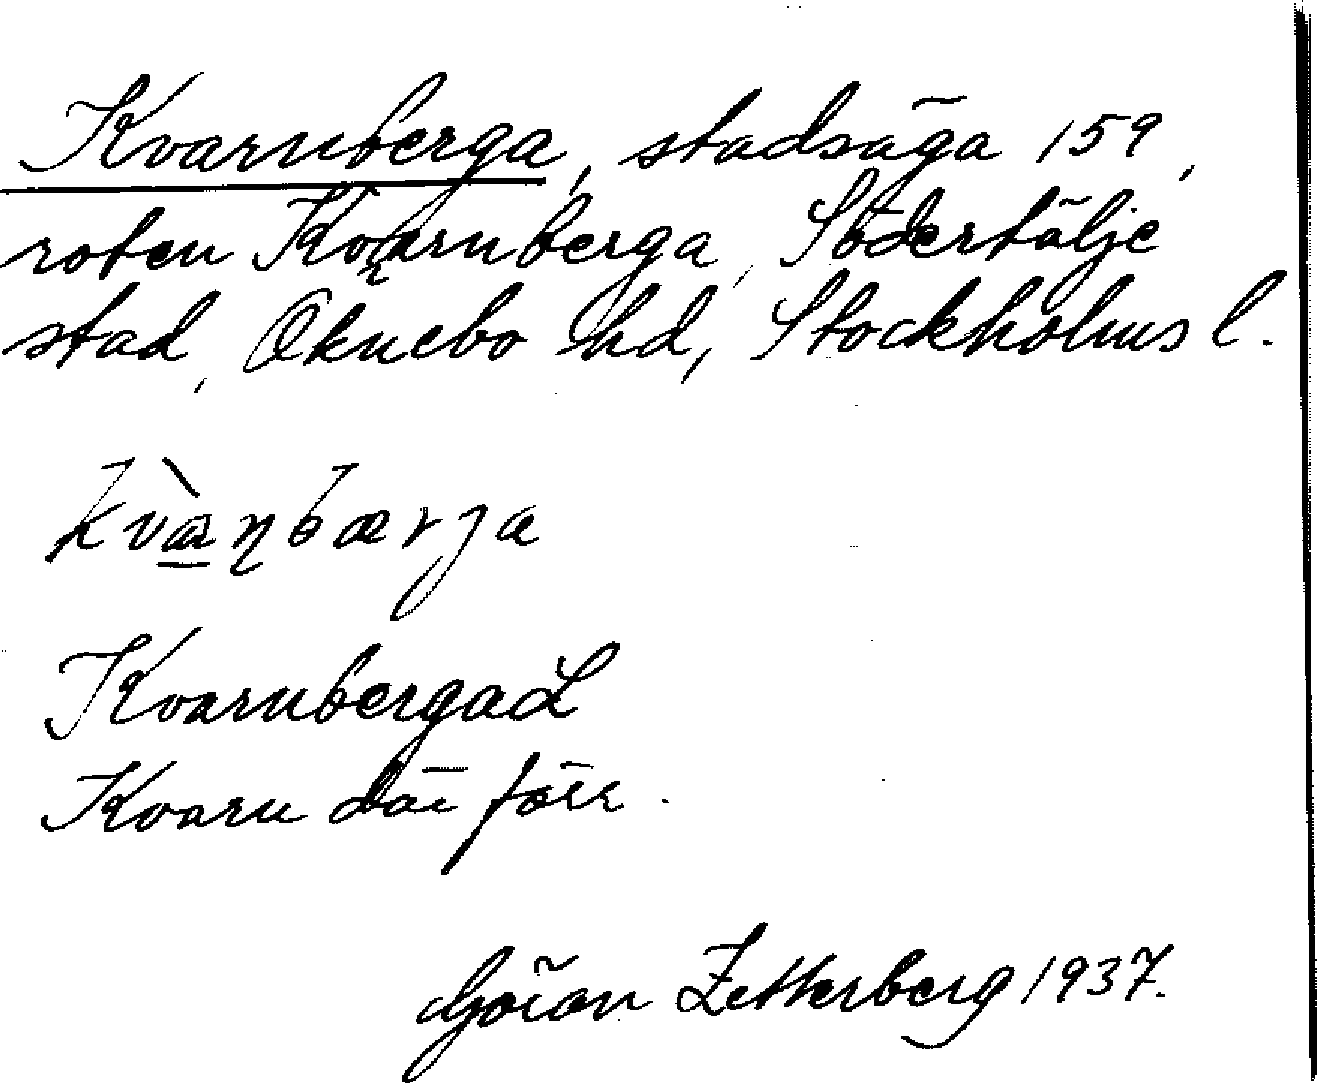 Kvarnberga, stadsäga 159,
roten Kvarnberga, Södertälje
stad, Öknebo hd, Stockholms l.
Kvarnberga
Kvarn där förr.
Göran Zetterberg 1937.